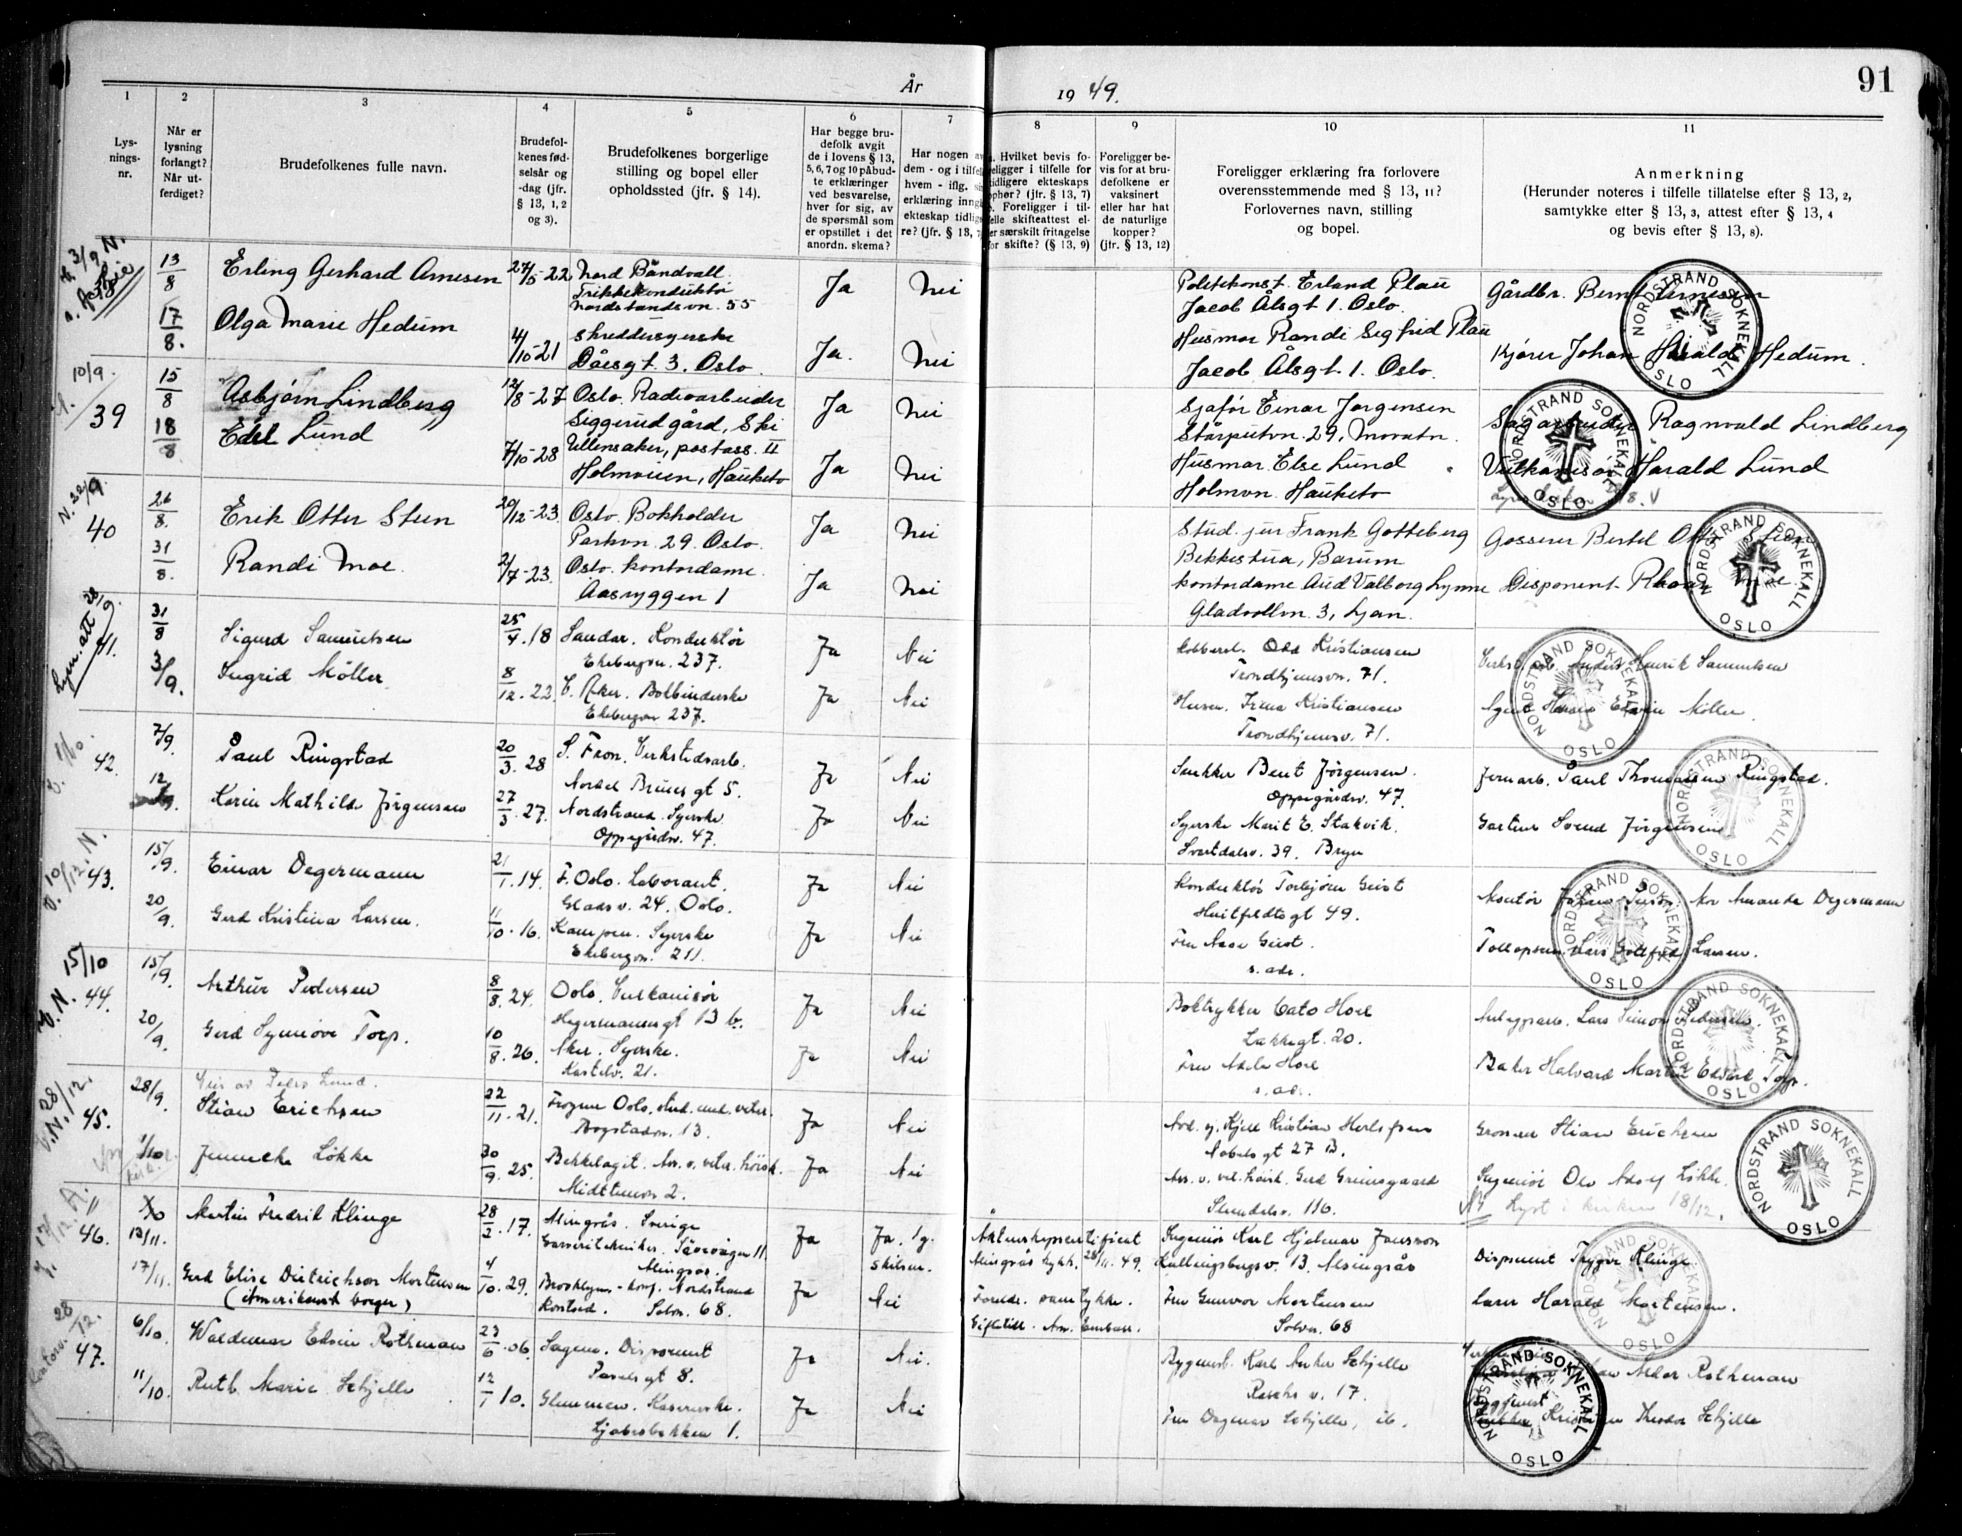 År 1949.
91
1 2 3 4 5 6 7 8 9 10 11
Lys-
nings-
nr.
Når er
lysning
forlangt?
Når ut-
ferdiget?
Brudefolkenes fulle navn.
Brudefol-
kenes fød-
selsår og
-dag (jfr.
§ 13, 1, 2
og 3).
Brudefolkenes borgerlige
stilling og bopel eller
opholdssted (jfr. § 14).
Har begge bru-
defolk avgit
de i lovens § 13,
5, 6, 7 og 10 påbud-
te erklæringer
ved besvarelse,
hver for sig, av
de spørsmål som
er opstillet i det
anordn. skema?
Har nogen av
dem - og i tilfel
hvem - iflg. si
erklæring inng
ekteskap tidlig
re? (jfr. § 13, 7
Hvilket bevis fo-
religger i tilfelle for
tidligere ekteskaps
ophør? (jfr. § 13, 7)
Foreligger i til-
felle skifteattest el-
er særskilt fritagelse
for skifte? (§ 13, 9)
Foreligger be-
vis for at bru-
defolkene er
vaksinert
eller har hat
de naturlige
kopper?
(jfr. § 13, 12)
Foreligger erklæring fra forlovere
overensstemmende med § 13, 11?
Forlovernes navn, stilling
og bopel.
Anmerkning
(Herunder noteres i tilfelle tillatelse efter § 13, 2,
samtykke efter § 13, 3, attest efter § 13, 4
og bevis efter § 13, 8).
13/8 Erling Gerhard Arnesen 27/5-22 Nord Båndvall Ja Nei Politikonst. Erland Plaü Gårdbr. Bernt Arnesen
Trikkekonduktør Jacob Ålsgt 1. Oslo.
Nordstrandsvn. 55
17/8. Olga Marie Hedum 4/10-21 Skreddersyerske Ja. Nei Husmor Randi Sigfrid Plaü Kjører Johan Harald Hedum.
Dåesgt. 3. Oslo Jacob Ålsgt. 1. Oslo.
10/9.
39 15/8 Asbjørn Lindberg 12/8-27 Oslo. Radioarbeider Ja Nei Sjafør Einar Jørgensen Sagarbeider Ragnvald Lindberg
Siggerud gård, Ski Stårputvn. 29,
18/8 Edel Lund 7/10-28 Ullensaker, postass. II Ja Nei Husmor Else Lund Vulkanisør Harald Lund
Holmveien, Hauketo Holmvn. Hauketo
N. 22/9.
40 26/8. Erik Otter Steen 20/12-23. Oslo. Bokholder Ja Nei Stud. jur Frank Gotteberg Grosserer Bertel Otter Steen
Parkvn. 29. Oslo. Bekkestua, Bærum
31/8. Randi Moe. 2/7-23. Oslo. kontordame. Ja Nei kontordame Aud Valborg Lynne Disponent
Aasryggen 1 Gladvollvn. 3, Ljan.
28/9.
41. 31/8 Sigurd Samuelsen 25/4.18 Sandar. Konduktør Ja Nei Odd Kristiansen Anders Henrik Samuelsen
Ekebergvn. 237. Trondhjemsvn. 71.
3/9. Ingrid Møller 8/12.22. V. Aker. Bokbinderske Ja Nei Husm. Irene Kristiansen Agent Edvin Møller.
Ekebergvn 237. Trondhjemsv. 71.
42. 7/9. Paul Ringstad 20/3.28 S. Fron. Verkstedsarb. Ja Nei Snekker Bent Jørgensen. Jernarb. Paul Thomassen Ringstad.
Nordal Bruns gt 5. Oppegårdsv. 47.
12/9. Karin Mathilde Jørgensen 27/3.27. Nordstrand. Syerske Ja Nei Syerske Marit E. Stakvik. Gartner Svend Jørgensen
Oppegårdsv. 47. Svartdalsv. 39. Bryn
43. 15/9. Einar Degermann 21/1.14. F. Oslo. Laborant. Ja Nei Konduktør Torbjørn Geist Montør Mor Amanda Degermann
Gladsv. 24. Oslo. Huitfeldtsgt 49.
20/9. Gerd Kristina Larsen. 11/10.16. Kampen. Syerske Ja Nei Fru Aase Geist. Tolloppsynsm. Lars Gottfred Larsen.
Ekebergvn. 211. s. adr.
15/10
44. 15/9. Arthur Pedersen 8/8.24. Oslo. Vulkanisør Ja Nei Boktrykker Cato Hoel Anleggsarb. Lars Simon Pedersen.
Hegermannsgt 13 b. Lakkegt. 20.
20/9. Gerd Synnøve Torp. 10/8.26. Aker. Syerske. Ja Nei Fru Adele Hoel Baker Halvard Martin Edvard Torp.
Kastelv. 21. s. ad.
28/12.
45. 28/9. Stian Erichsen 22/11.21. Frogner Oslo. stud. med. veter. Ja Nei Kjell Kristian Herlofsen Grosserer Stian Erichsen
Bogstadvn. 13. Nobels gt 27 B.
1/10 Jennecke Løkke 30/9.25. Bekkelaget. Ass. v. veter. høisk. Ja Nei Ass. v. vet. høisk. Gerd Grimsgaard Ingeniør Ole Adolf Løkke.
Midttunvn 2. Slemdalsv. 116. Lyst i kirken 18/12.
46. 12/11. Martin Fredrik Klinge 28/2.17. Alingsås. Sverige Ja Ja. 1 g. Ingeniør Karl Hjalmar Jansson Disponent Trygve Klinge
Garveritekniker. 11 skilsm. Alingsås 28/11.49. Kullingsbergsv. 13. Alingsås
Alingsås.
17/11. Gerd Elise Dietrichson Mortensen 4/10.29. Brooklyn - konf. Nordstrand Ja Nei Foreldr. samtykke. Fru Gunvor Mortensen Lærer Harald Mortensen.
(Amerikansk borger) Kostsed. Solvn. 68. Am. Embass. Solvn. 68
28/12.
47. 6/10. Waldemar Edvin Rothman 23/6.06. Sagene. Disponent Ja Nei. Byggmest. Karl Anker Schjelle Rothman
Pavels gt 8. Raschs v. 17.
11/10. Ruth Marie Schjelle 12/1.10. Glemmen. Kassererske. Ja Nei Fru Dagmar Schjelle, ib. Byggmest. Theodor Schjelle
Ljabrubakken 1.
NORDSTRAND SOKNEKALL OSLO
NORDSTRAND SOKNEKALL OSLO
NORDSTRAND SOKNEKALL OSLO
NORDSTRAND SOKNEKALL OSLO
NORDSTRAND SOKNEKALL OSLO
NORDSTRAND SOKNEKALL OSLO
NORDSTRAND SOKNEKALL OSLO
NORDSTRAND SOKNEKALL OSLO
NORDSTRAND SOKNEKALL OSLO
NORDSTRAND SOKNEKALL OSLO